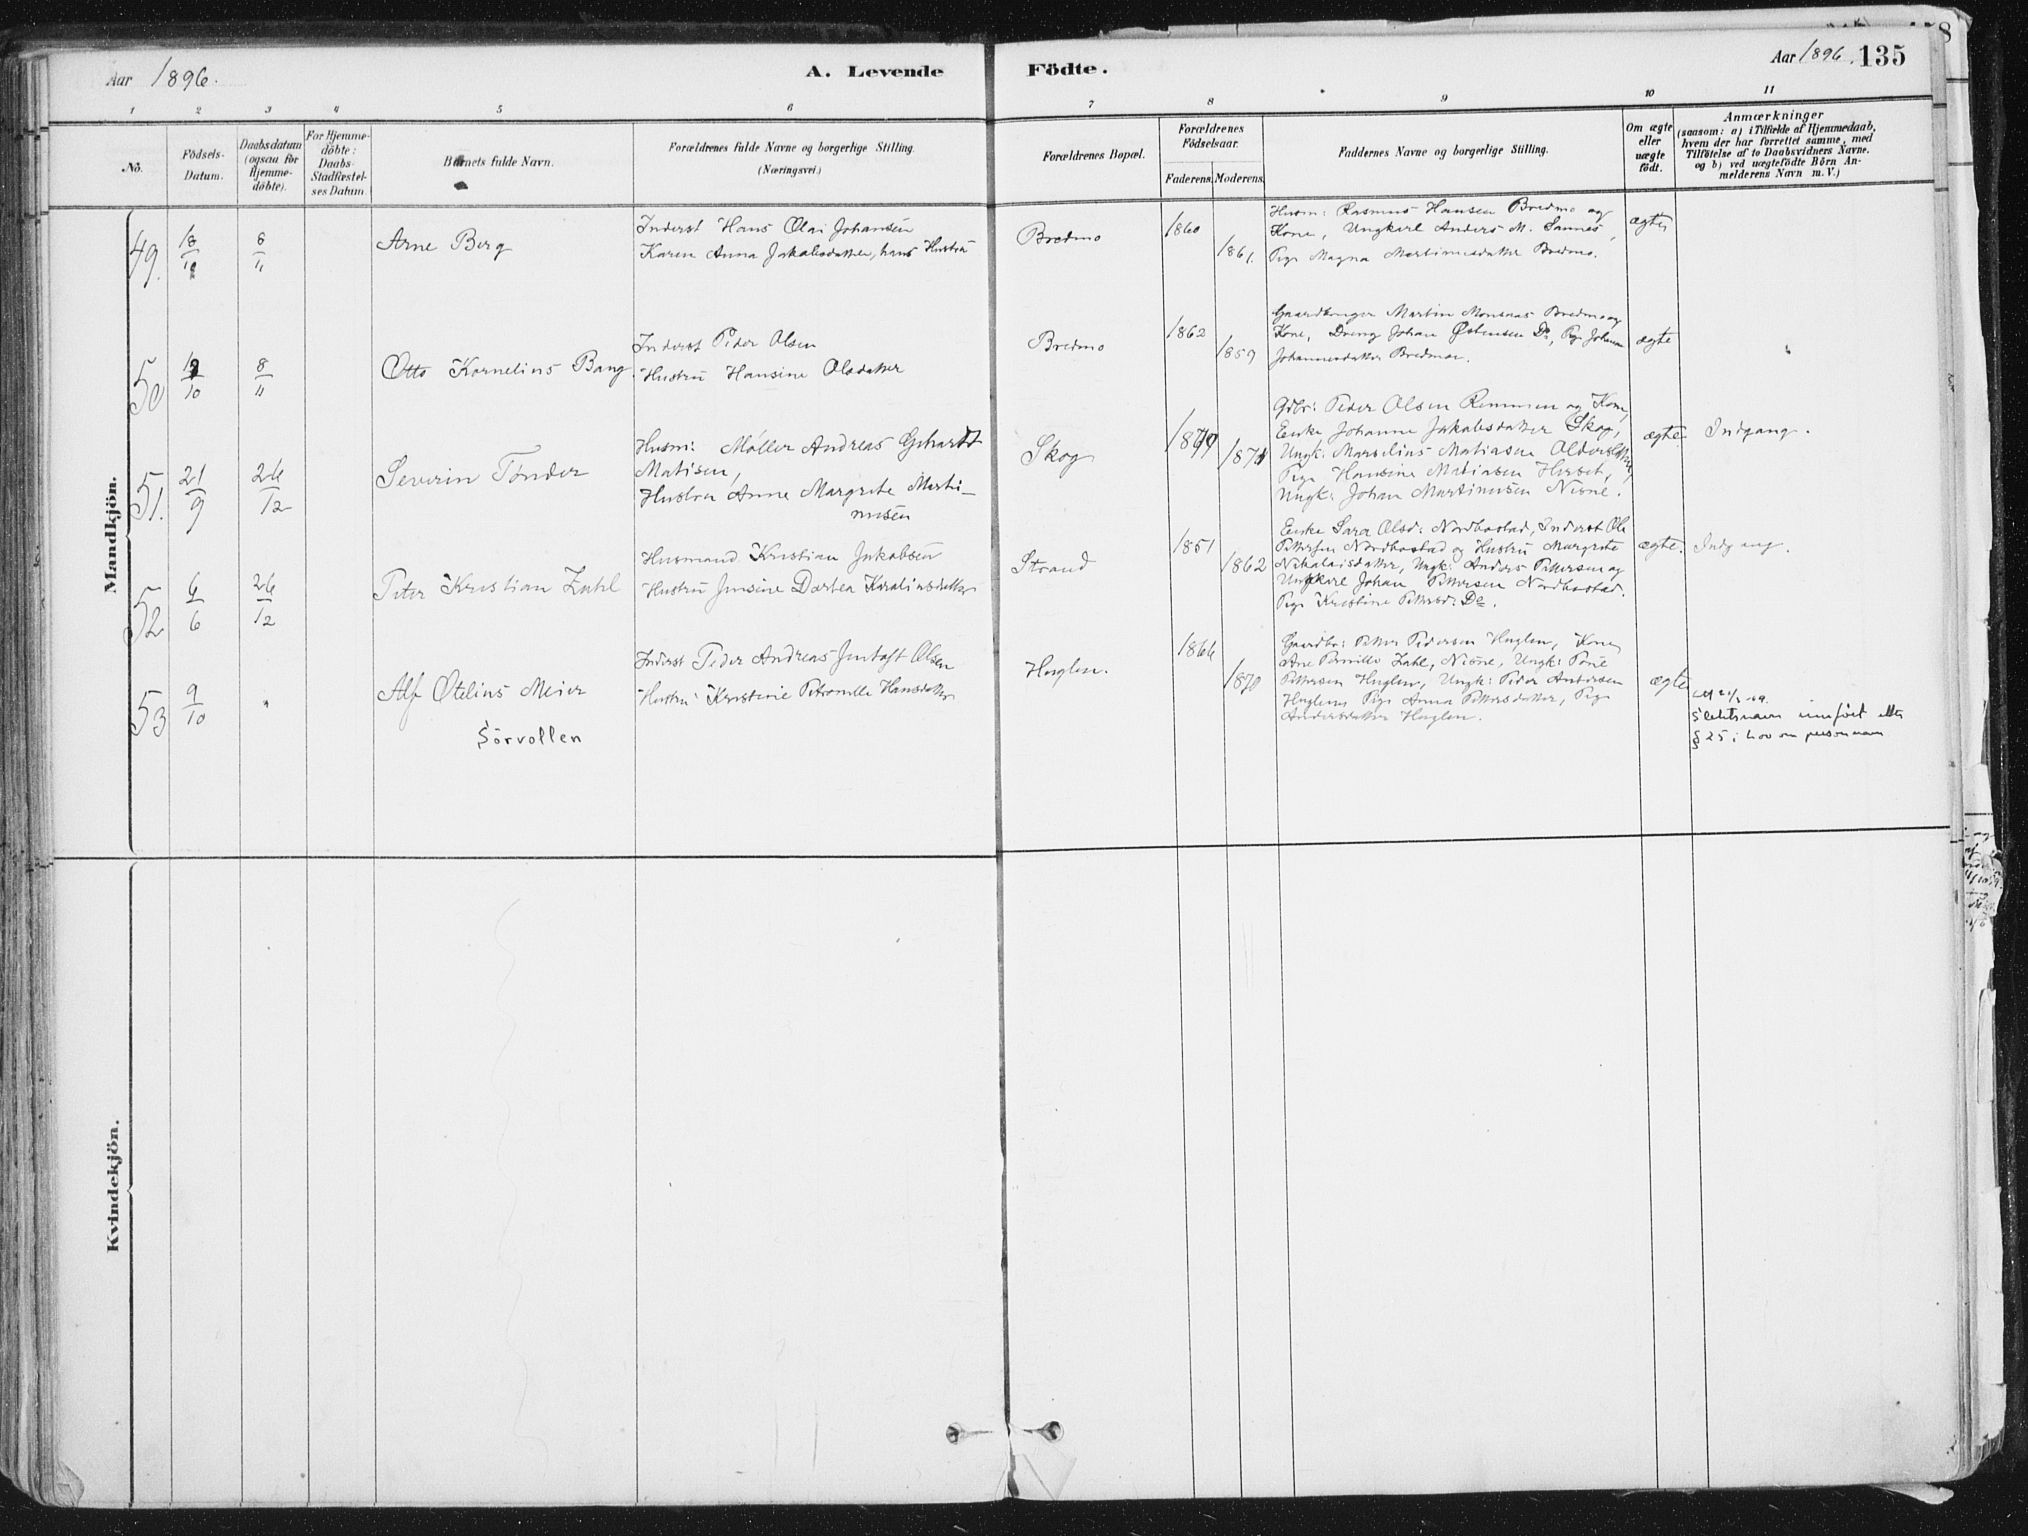 Aar 1896.
A. Levende Födte.
Aar 1896. 135
1 2 3 4 5 6 7 8 9 10 11
No.
Födsels-Datum.
Daabsdatum (ogsaa for Hjemme-döbte).
For Hjemme-döbte: Daabs-Stadfæstel-ses Datum
Barnets fulde Navn.
Forældrenes fulde Navne og borgerlige Stilling. (Næringsvei.)
Forældrenes Bopæl.
Forældrenes Födselsaar.
Faderens. Moderens.
Faddernes Navne og borgerlige Stilling.
Om ægte eller uægte födt.
Anmærkninger
(saasom: a) i Tilfælde af Hjemmedaab,
hvem der har forrettet samme, med
Tilföielse af to Daabsvidners Navne.
og b) ved uægtefödte Börn An-
melderens Navn m. V.)
Mandkjön.
49. 18/10 8/11
Arne Berg
Inderst Hans Olai Johansen
Karen Anna Jakobsdatter, hans Hustru
Bredmo
1860
1861.
Husm: Rasmus Hansen Bredmo og
Kone, Ungkarl Anders M. Sannes,
Pige Magna Martinusdatter Bredmo.
ægte
50 8/11
Otto Kornelius Bang
Inderst Peder Olsen
Hustru Hansine Olsdatter
Bredmo
1862
1859
Gaardbruger Martin Monsaas Bredmo og
Kone, Dreng Johan Østensen Do, Pige Johanna
Johannesdatter Bredmo.
ægte
51. 21/9 26/12
Severin Tønder
Husm: Møller Andreas Gehardt
Matisen,
Hustru Anne Margrete Marti-
nusen
Skog
Gdbr: Peder Olsen Remmen og Kone,
Enke Johanne Jakobsdatter Skog,
Ungk: Marselius Matiasen
Pige Hansine Matiasen
Ungk: Johan Martinusen
ægte
Indgang.
52 6/6 26/12
Peter Kristian Zahl
Husmand Kristian Jakobsen
Hustru Jensine Dortea
Strand
1851
1862
Enke Sara Olsd: Nordbostad, Inderst Ole
Pettersen Nordbostad og Hustru Margrete
Nikolaisdatter, Ungk: Anders Pettersen og
Ungkarl Johan Pettersen Nordbostad.
Pige Kristine Pettersd: Do.
ægte.
Indgang.
53 9/10 "
Alf Otelius Meier
Sörvollen
Inderst Peder Andreas Olsen
Hustru Kristine Petronelle Hansdatter
Huglen.
1866
1870
Gaardbr: Petter Pedersen Huglen, Kone
Ane Pernille Zahl, Ungk:
Pettersen Huglen, Ungk: Peder Andersen
Huglen, Pige Anna Pettersdatter, Pige
Andersdatter Huglen.
ægte
Slektsnavn innført etter
§ 25 i Lov om personnavn
Kvindekjön.